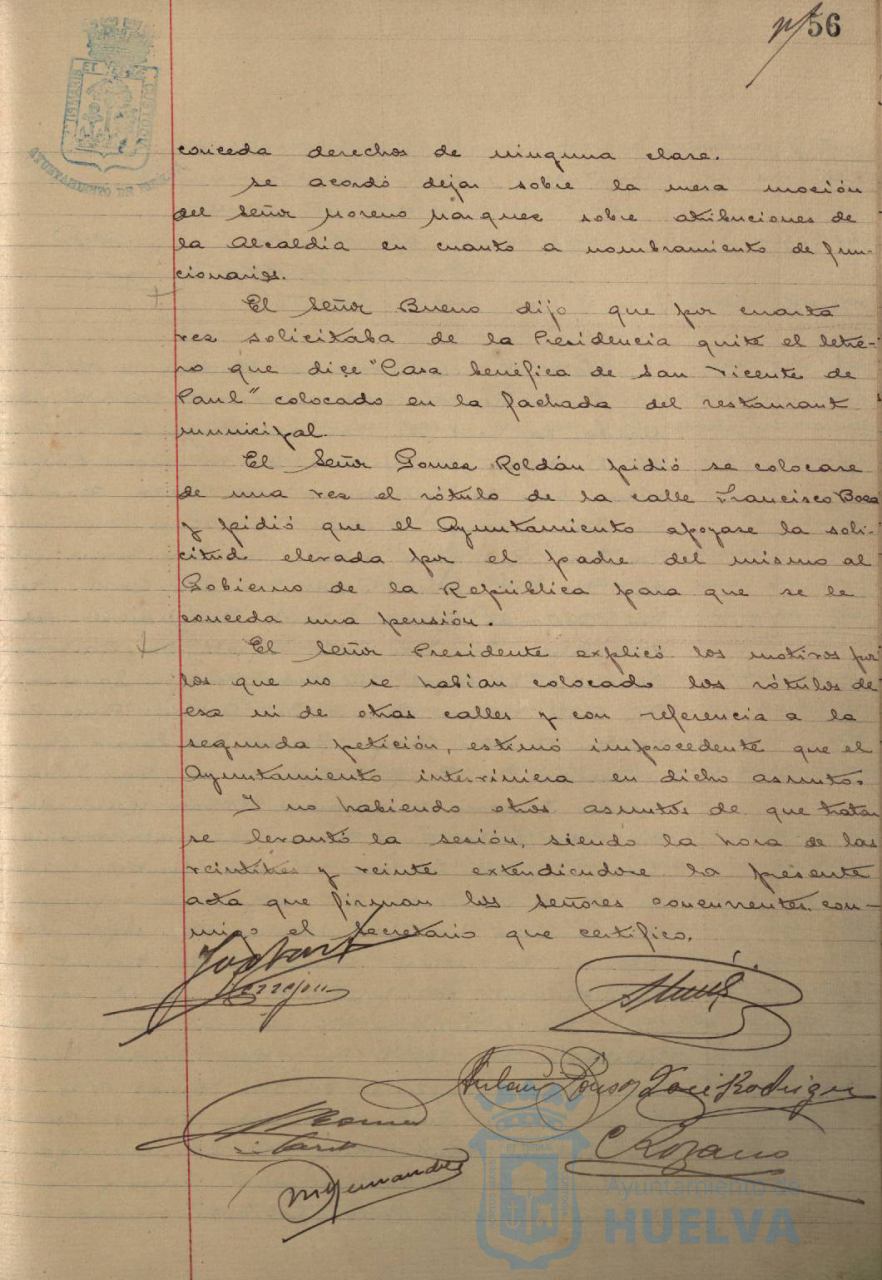 56
conceda derechos de ninguna clase.
se acordó dejar sobre la mesa moción
del Señor Moreno Marquez sobre atribuciones de
la Alcaldía en cuanto a nombramiento de fun-
cionarios.
El Señor Bueno dijo que por cuarta
vez solicitaba de la Presidencia quite el letre-
ro que dice "Casa benéfica de San Vicente de
Paul" colocado en la fachada del restaurant
municipal.
El Señor Gomez Roldán pidió se colocase
de una vez el rótulo de la calle Francisco Boza
y pidió que el Ayuntamiento apoyase la soli-
citud elevada por el padre del mismo al
Gobierno de la República para que se le
conceda una pensión.
El Señor Presidente explicó los motivos por
los que no se habían colocado los rótulos de
esa ni de otras calles y con referencia a la
segunda petición, estimó improcedente que el
Ayuntamiento interviniera en dicho asunto.
Y no habiendo otros asuntos de que tratar
se levantó la sesión, siendo la hora de las
veintitres y veinte extendiendose la presente
acta que firman los señores concurrentes con-
migo el Secretario que certifico.
José Rodriguez
C Rozano
M Fernandez
Ayuntamiento de
HUELVA